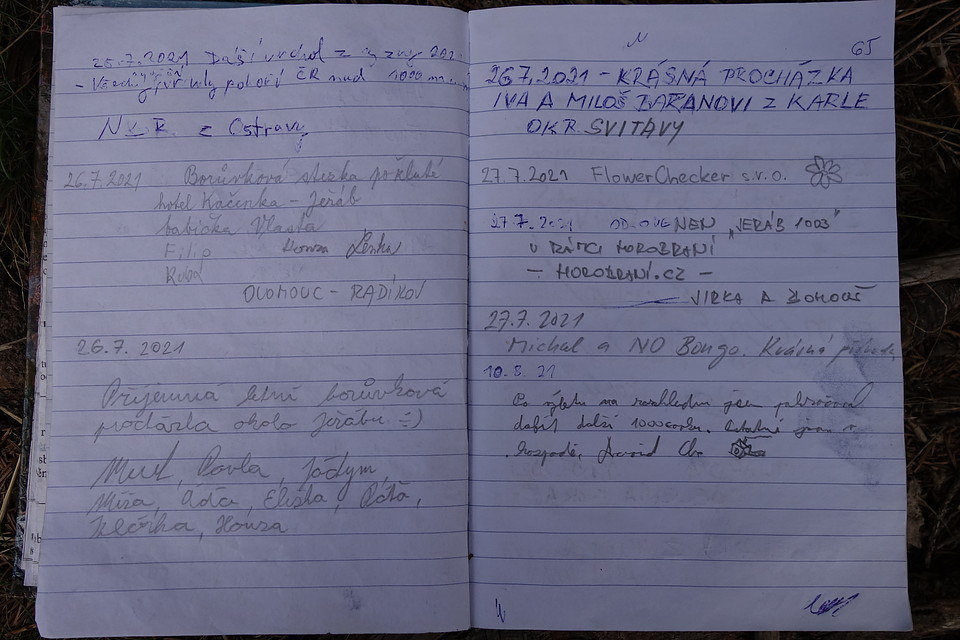 25.7.2021 Další vrchol z
- Všechny vrcholy pohoří ČR nad 1000
z Ostravy
26.7.2021 Borůvková stezka po
hotel Káčenka - Jeřáb
babička Vlasta
Filip Honza Lenka
OLOMOUC - RADÍKOV
26.7. 2021
Příjemná letní borůvková
procházka okolo Jeřábu :)
Pavla, Jáchym
Míša, Áďa, Eliška,
Klárka, Honza
65
26.7.2021 - KRÁSNÁ PROCHÁZKA
IVA A MILOŠ BARANOVI Z KARLE
OKR. SVITAVY
27.7.2021 FlowerChecker s.r.o.
27.7.2021 ODLOVENEN „JEŘÁB 1003"
V RÁMCI HOROBRANÍ
- HOROBRANÍ.CZ -
JIRKA A
27.7. 2021
Michal a NO Bongo. Krásná příroda
10.8.21
Po výletu na rozhlednu jsem
dobít další 1000covku. Ostatní jsou v
hospodě.